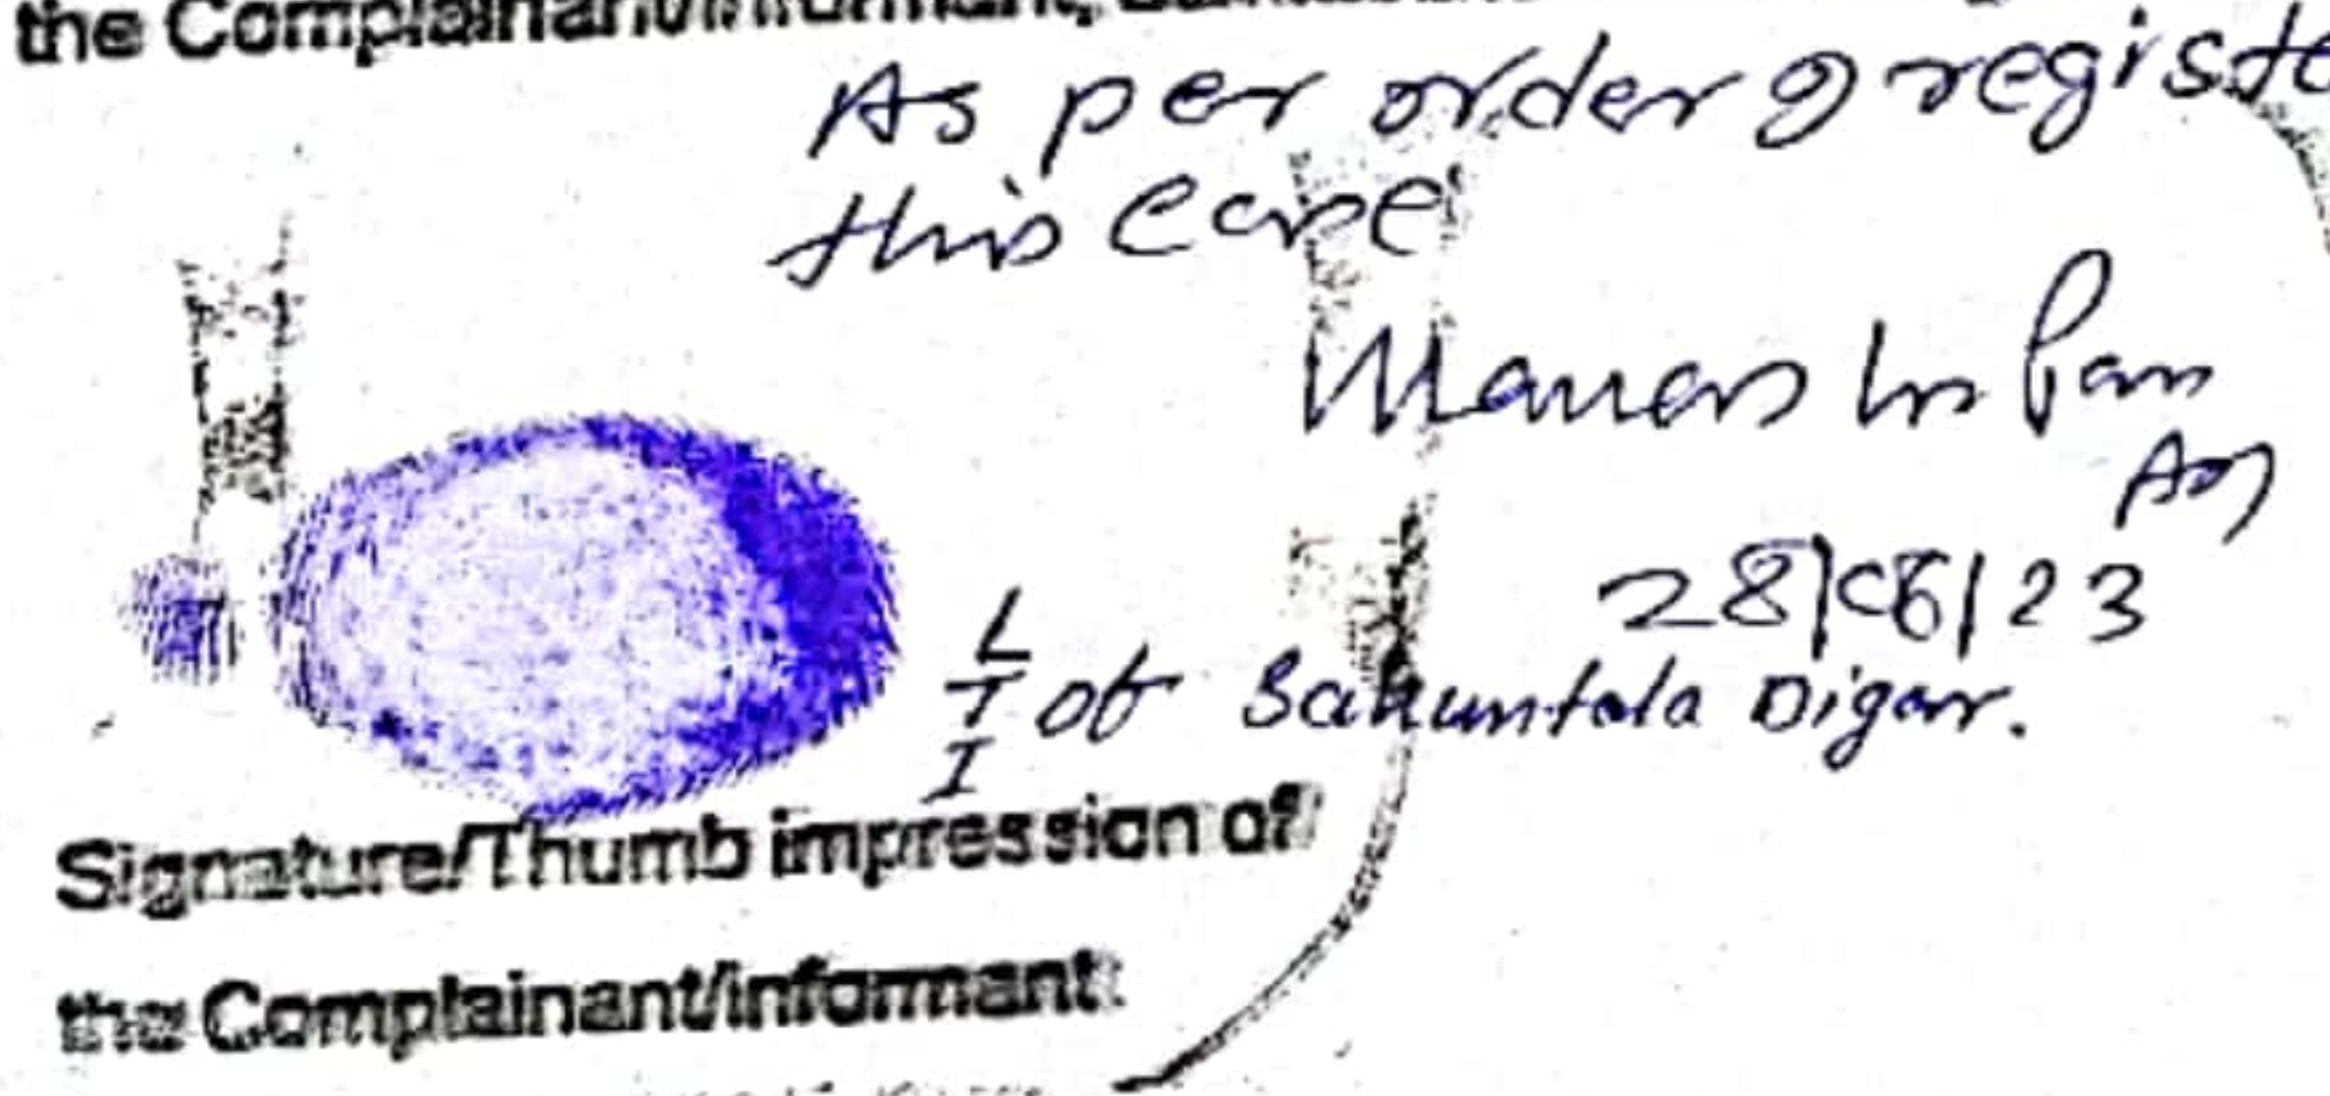 the Complainant/informant,
As per order I registe
this case
Manas
28/06/23
L
T of Sakuntala Digar.
I
Signature/Thumb impression of
the Complainant/informant